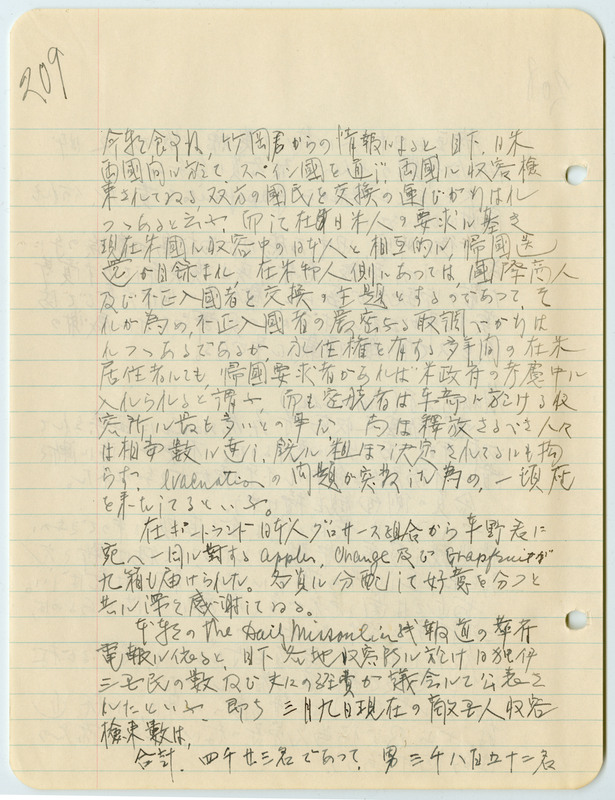 209
今朝食事后、竹岡君からの情報によると目下、日米
両國間に於て、スペイン國を通じ、両國に収容検
束されてゐる双方の國民を交換の運びがはれ
つゝあると云ふ、而して在日米人の要求に基き
現在米國に収容中の日本人と相互的に、帰國送
還が目録まれ、在米邦人側にあっては、國際商人
及び不正入國者を交換の主題とするのであって、そ
れが為め、不正入國者の嚴密なる取調べがはは
れつゝあるであるが、永住権を有する多年間の在米
居住者にても、帰國要求者からあれば米政府の考慮中に
入れられると謂ふ、而も
容所に最も多いとの事だ、尚ほ釋放さるべき人々
は相当数に達し、既に粗ぼ決定されてるにも拘
らず、evacuationの問題が突発した為め、一頓挫
を来たしてるといふ。
在ポートランド日本人グロサース組合から平野君に
宛へ一同に對するapples, Orange及びGrapfruitが
九箱も届けられた。各員に分配して好意を分つと
共に深く感謝してゐる。
本朝のthe Daily Missoulian紙報道の華府
電報に依ると、目下各地収容所に於け日独伊
三國民の数及び夫々の経費が議会にて公表さ
れたといふ。即ち三月九日現在の敵國人収容
檢束數は、
合計、四千廿三名であって、男三千八百五十二名